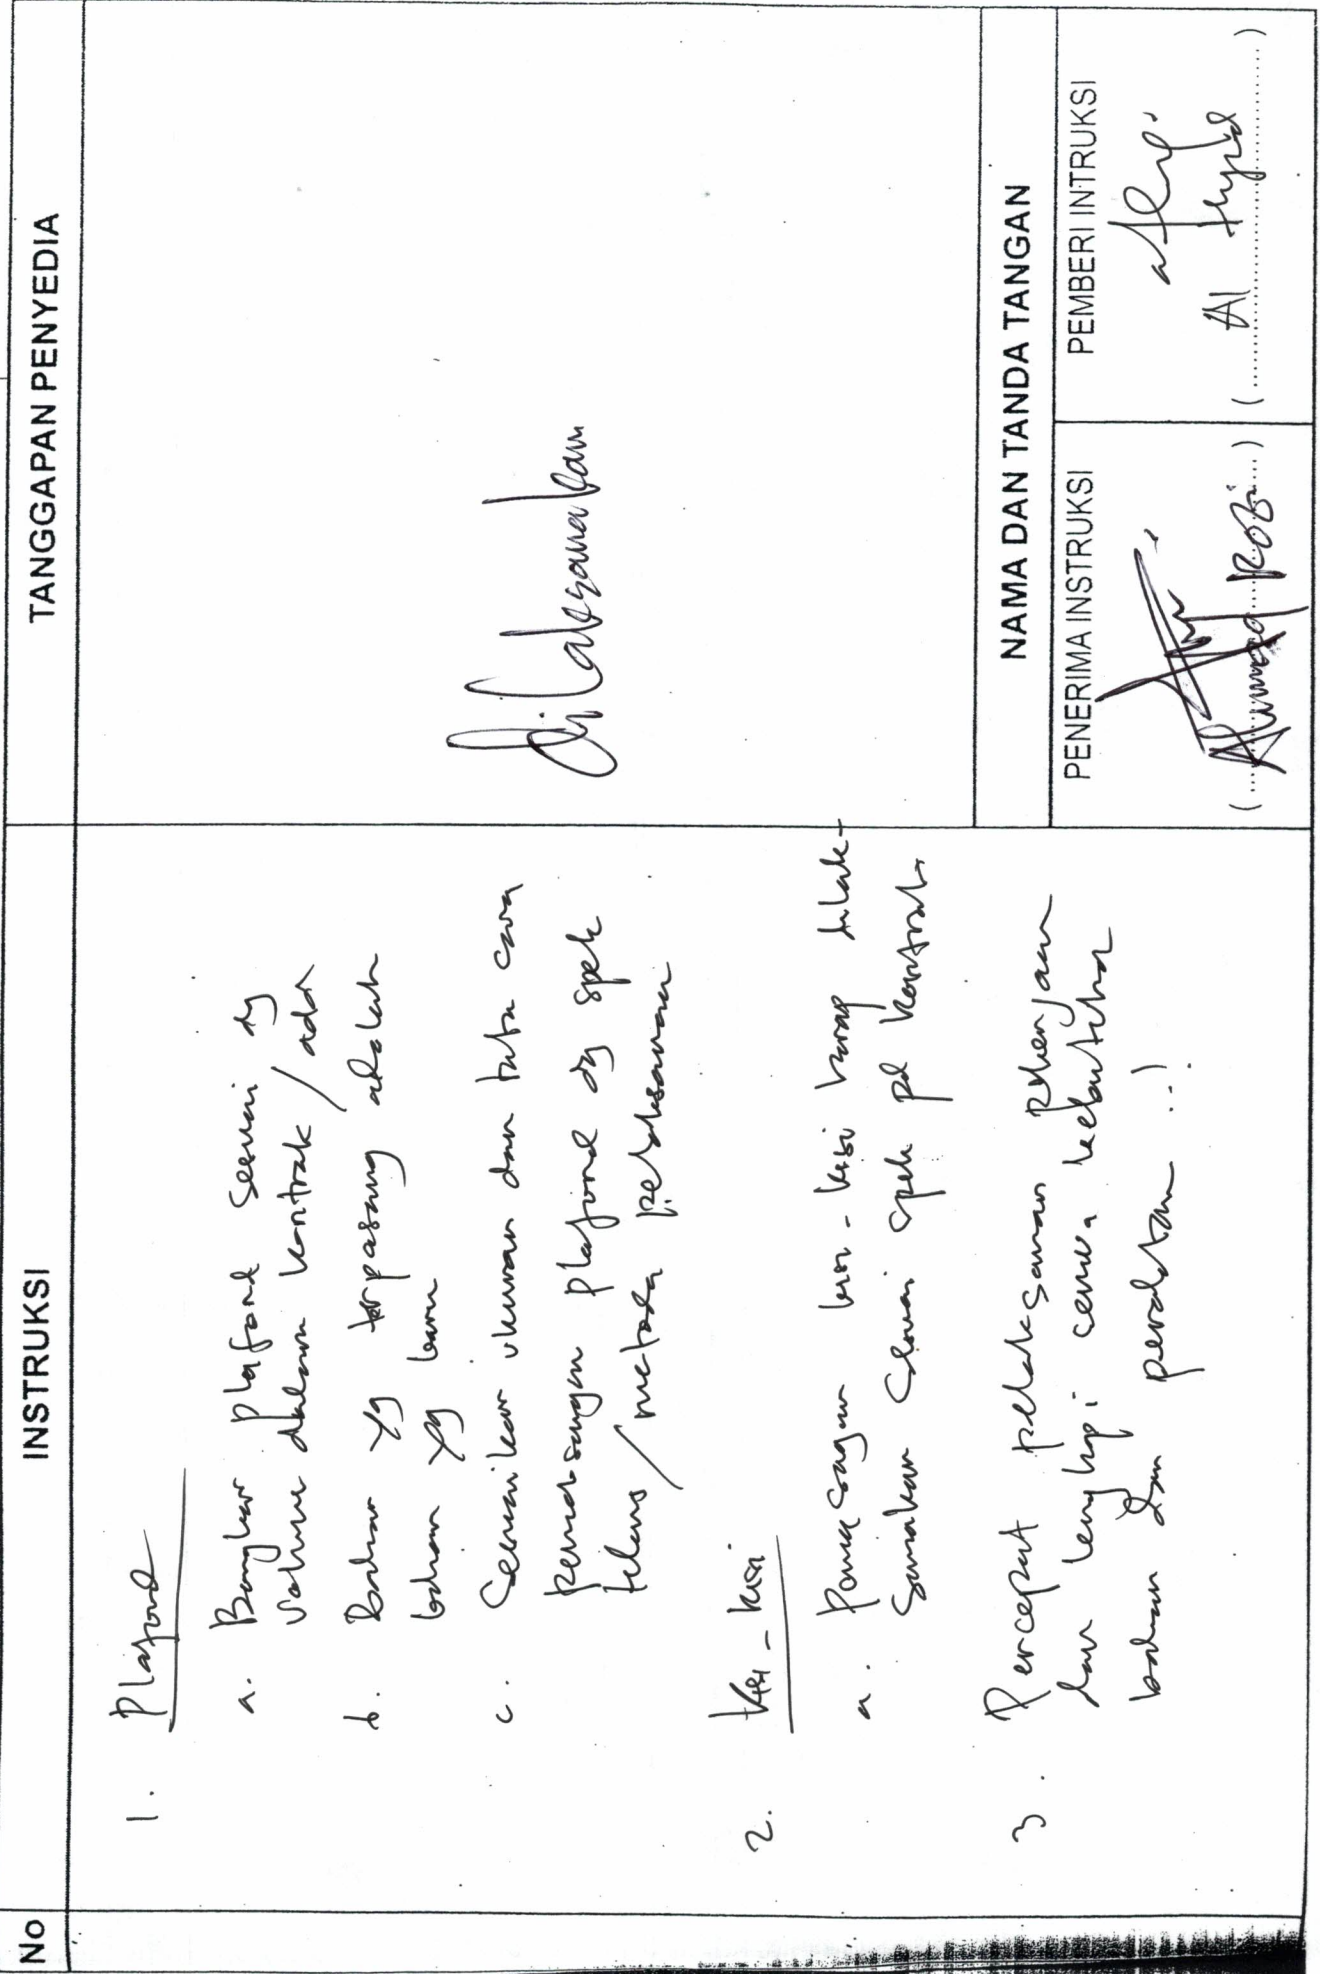 No
INSTRUKSI
TANGGAPAN PENYEDIA
1. Plafond
a. Bongkar plafond sesuai dg
volume dalam kontrak / add
b. Bahan yg terpasang adalah
bahan yg baru
c. Sesuaikan ukuran dan tata cara
pemasangan plafond dg spek
teknis / metoda pelaksanaan
2. Kisi - kisi
a. Pemasangan kisi - kisi harap dilak-
sanakan sesuai spek pd kontrak
3. Percepat pelaksanaan pekerjaan
dan lengkapi semua kebutuhan
bahan dan peralatan ..!
dilaksanakan
NAMA DAN TANDA TANGAN
PENERIMA INSTRUKSI
PEMBERI INTRUKSI